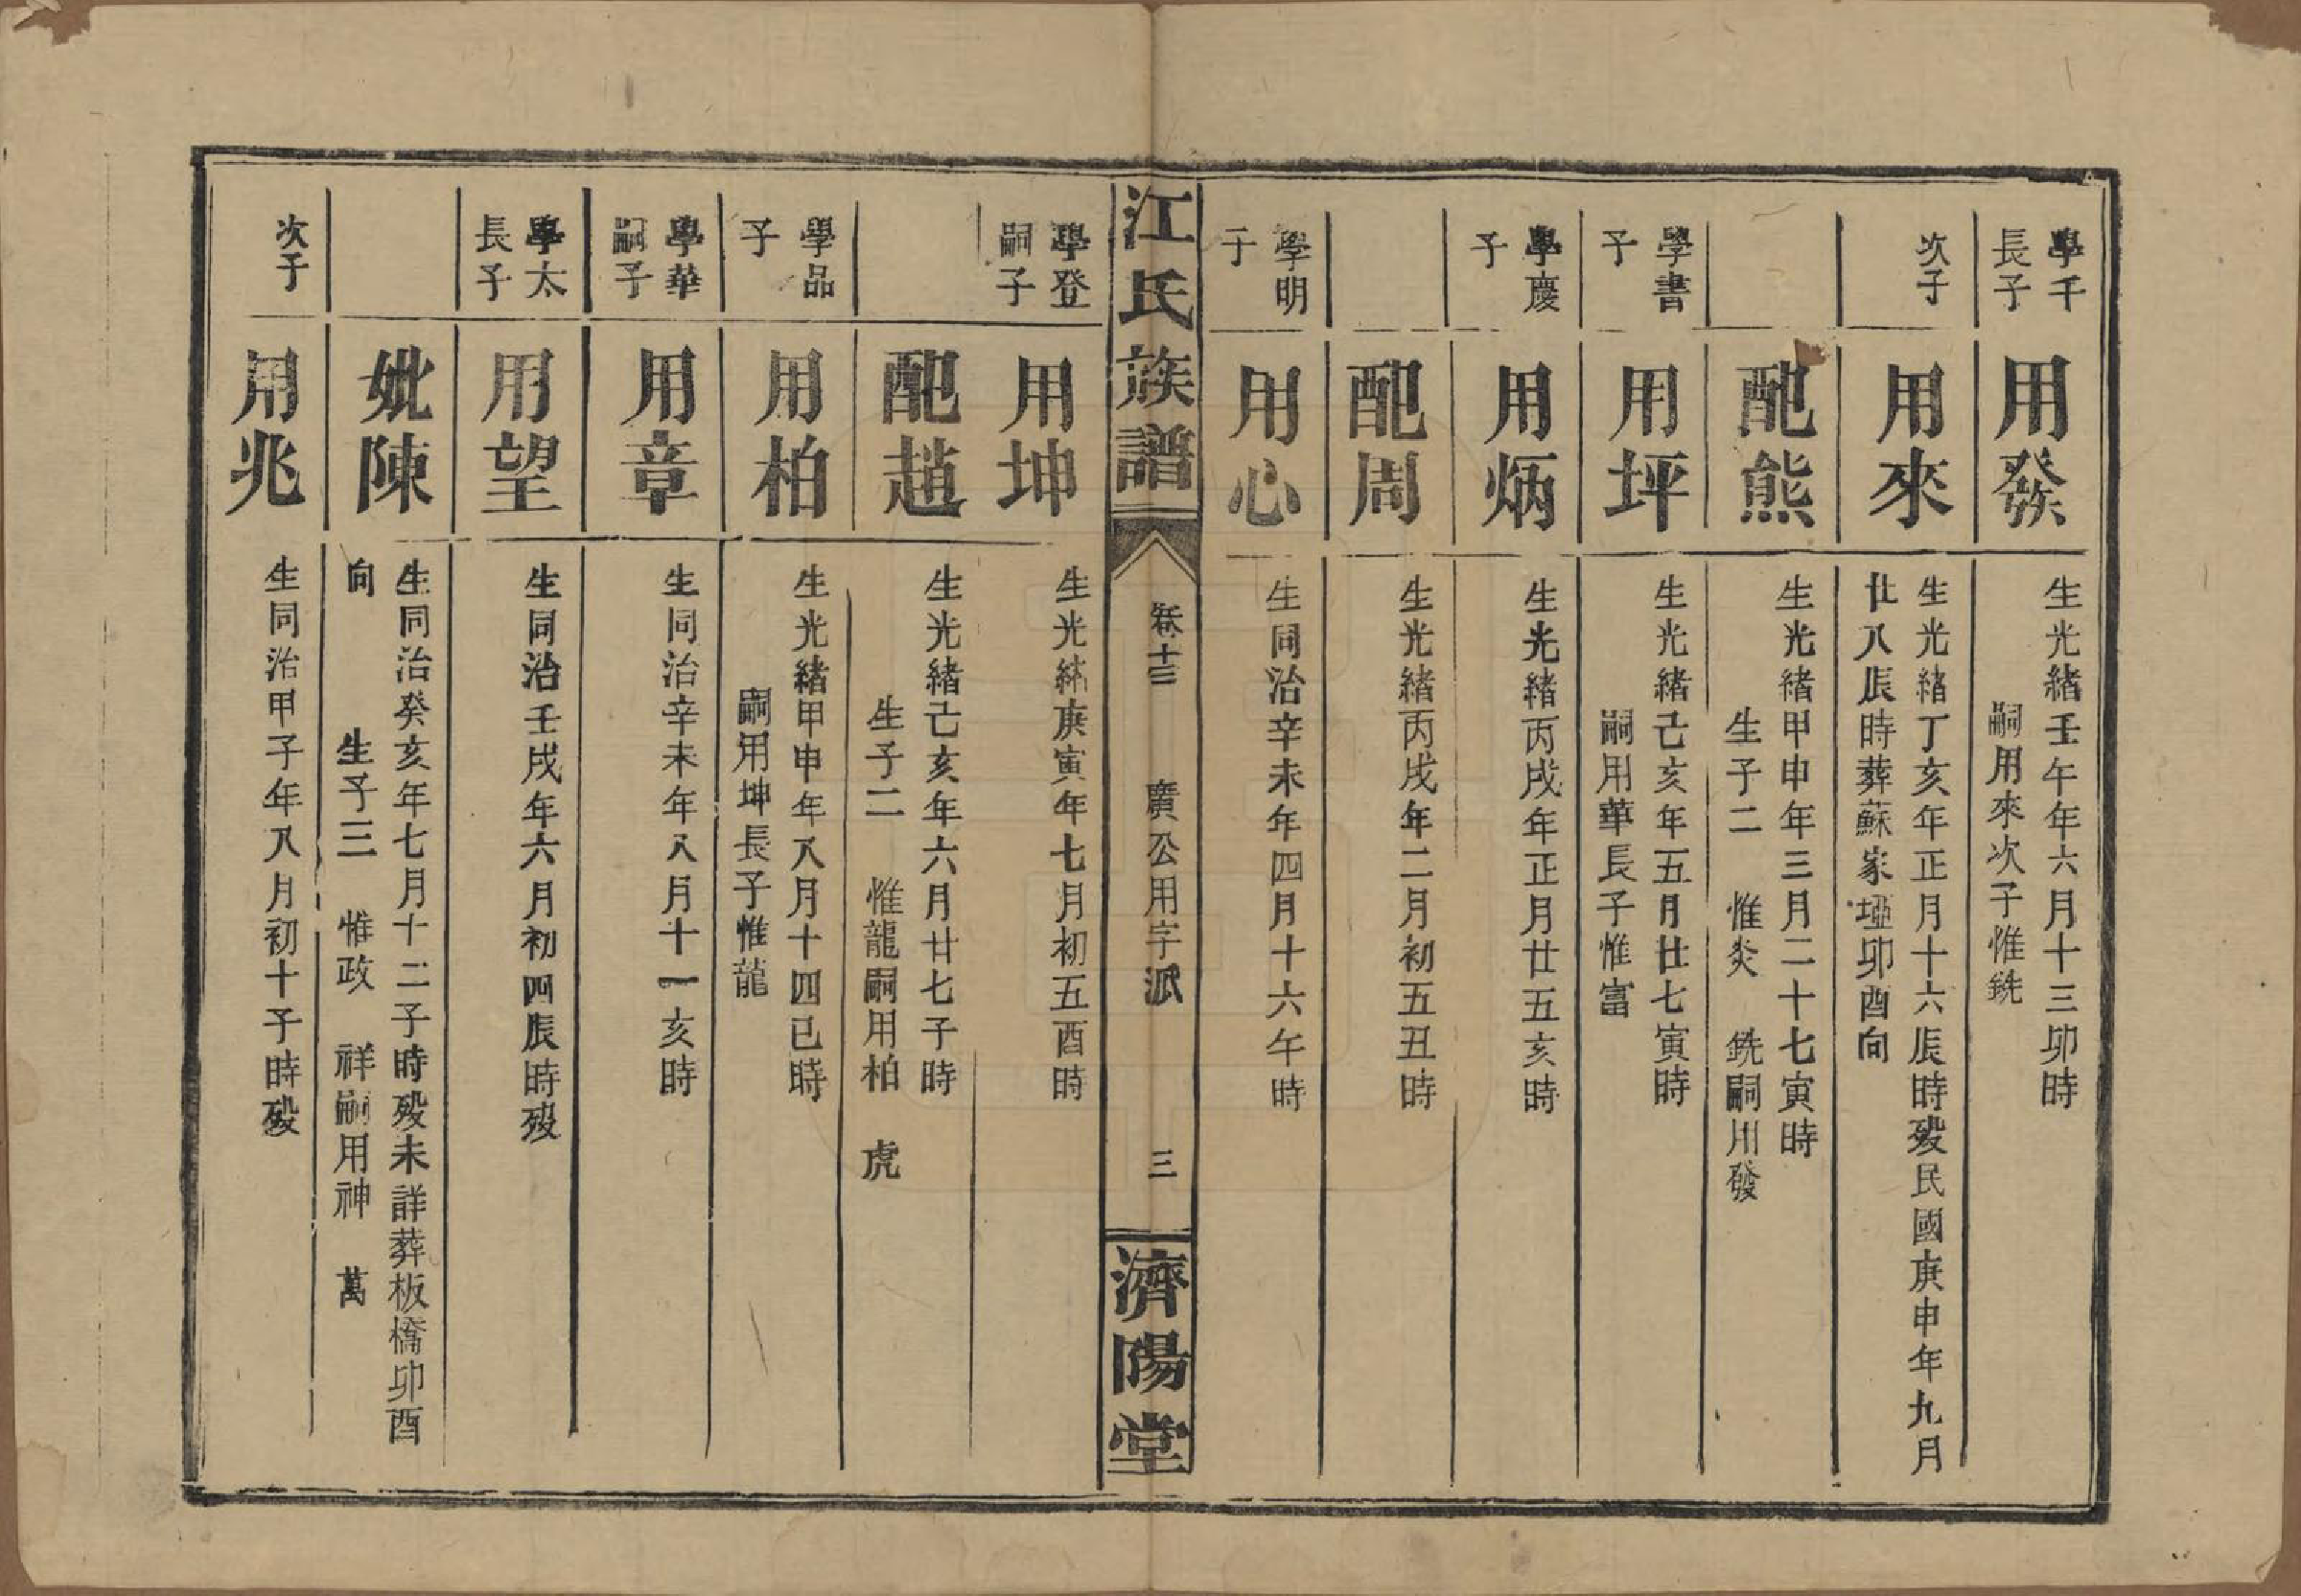 學千
長子
用發
生光緒壬午年六月十三卯時
嗣用來次子惟銑
次子
用來
生光緒丁亥年正月十六辰時歿民國庚申年九月
廿八辰時葬蘇家埡卯酉向
配熊
生光緒甲申年三月二十七寅時
生子二　惟炎　銑嗣用發
學書
子
用坪
生光緒己亥年五月廿七寅時
嗣用華長子惟富
學慶
子
用炳
生光緒丙戌年正月廿五亥時
配周
生光緒丙戌年二月初五丑時
學明
子
用心
生同治辛未年四月十六午時
江氏族譜
卷十三　廣公用字派　三
濟陽堂
學登
嗣子
用坤
生光緒庚寅年七月初五酉時
配趙
生光緒己亥年六月廿七子時
生子二　惟龍嗣用柏　虎
學品
子
用柏
生光緒甲申年八月十四巳時
嗣用坤長子惟龍
學華
嗣子
用章
生同治辛未年八月十一亥時
學太
長子
用望
生同治壬戌年六月初四辰時歿
妣陳
生同治癸亥年七月十二子時歿未詳葬板橋卯酉
向　生子三　惟政　祥嗣用神　萬
次子
用兆
生同治甲子年八月初十子時歿